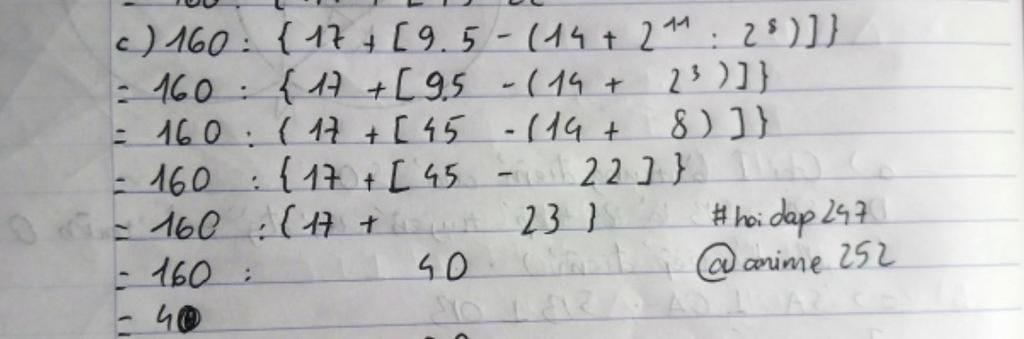 c) 160 : { 17 + [ 9.5 - (14 + 2¹¹ : 2⁸) ] }
= 160 : { 17 + [ 9.5 - (14 + 2³) ] }
= 160 : { 17 + [ 45 - (14 + 8) ] }
= 160 : { 17 + [ 45 - 22 ] }
= 160 : { 17 + 23 } #hoidap247
= 160 : 40 @anime 252
= 4